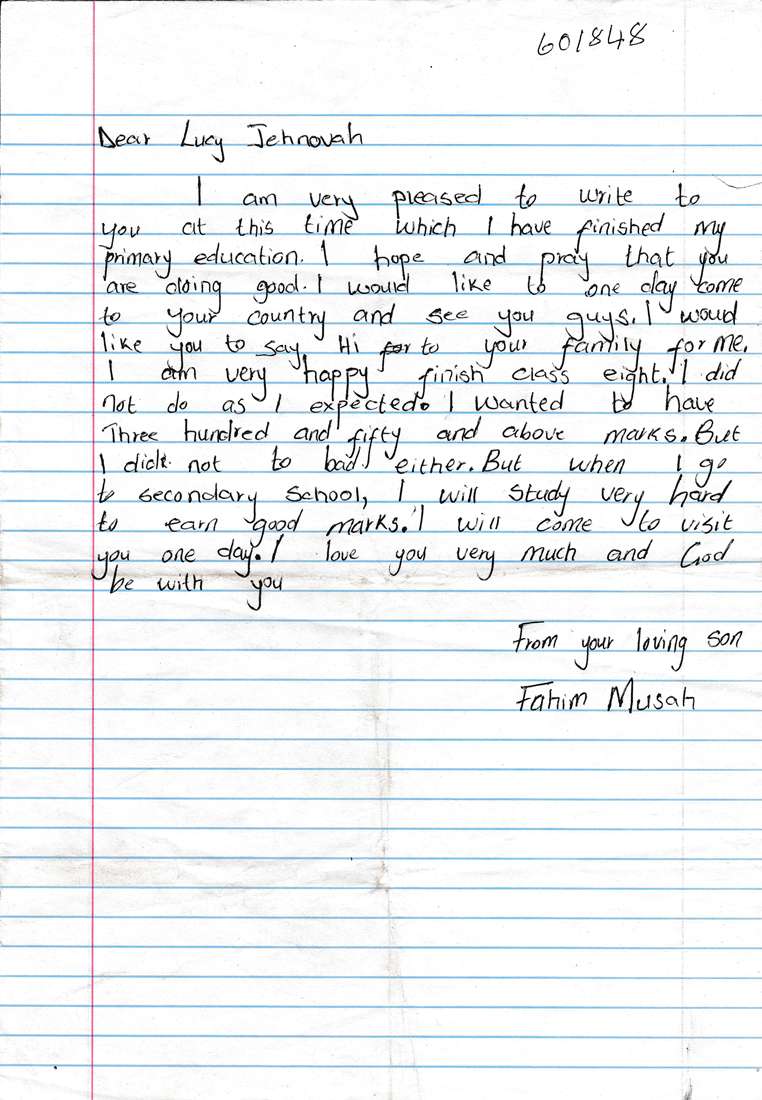 601848
Dear Lucy Jehnovah
I am very pleased to write to
you at this time which I have finished my
primary education. I hope and pray that you
are doing good. I would like to one day come
to your country and see you guys. I woud
like you to say Hi for to your family for me.
I am very happy finish class eight. I did
not do as I expected. I wanted to have
Three hundred and fifty and above marks. But
I didt not to bad either. But when I go
to secondary school, I will study very hard
to earn good marks. I will come to visit
you one day. I love you very much and God
be with you
From your loving son
Fahim Musah